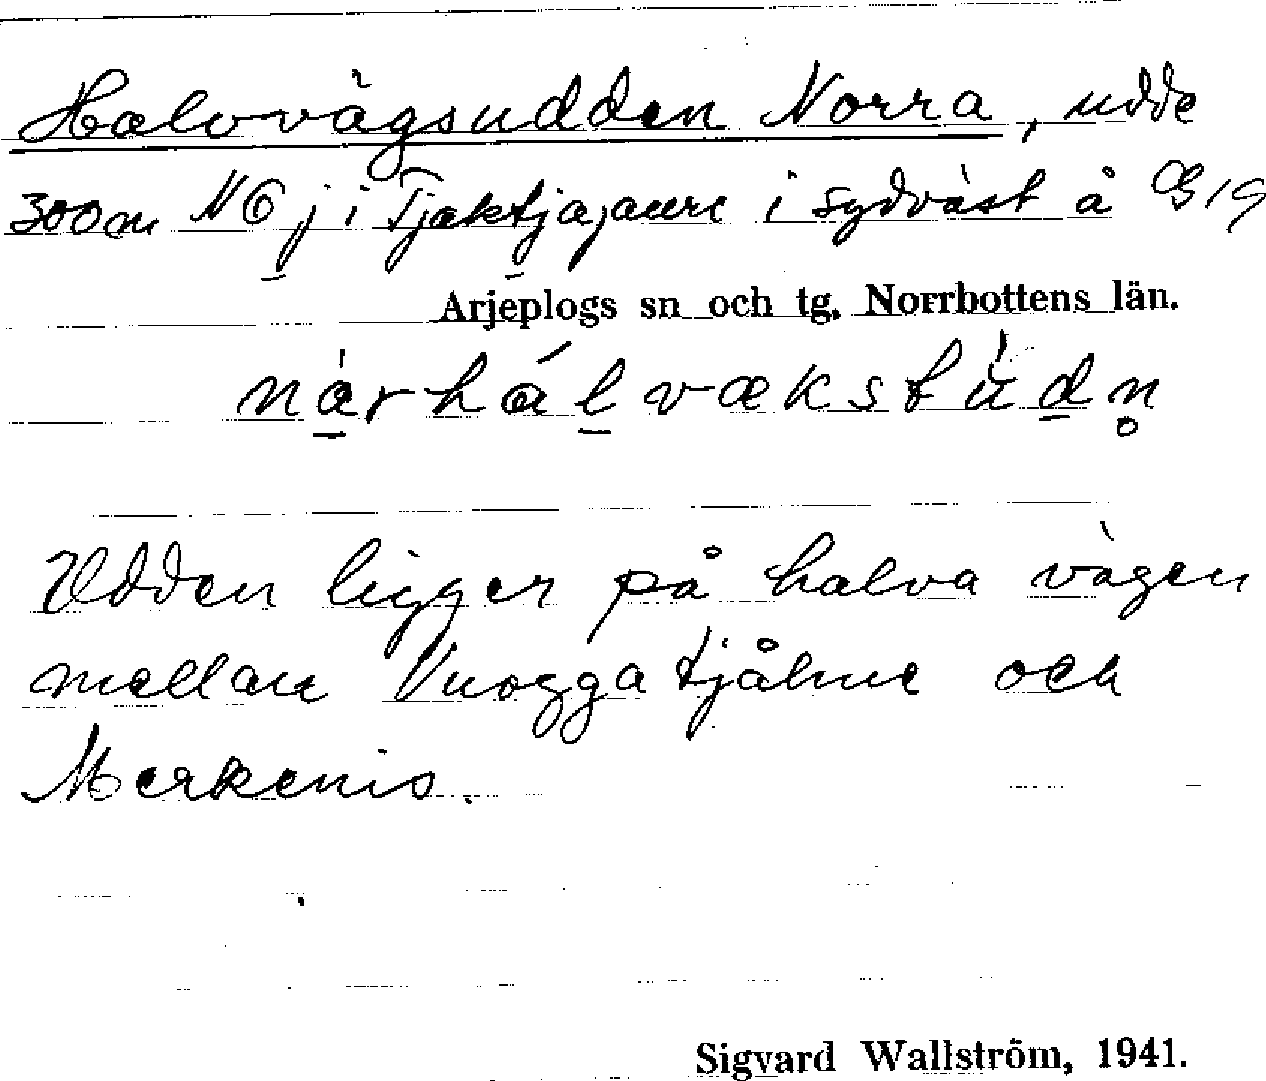 Halvvägsudden Norra, udde
300 m NO j i Tjaktjajaure i sydväst å G 19
Arjeplogs sn och tg. Norrbottens län.
Udden ligger på halva vägen
mellan Vuoggatjålme och
Merkenis.
Sigvard Wallström, 1941.